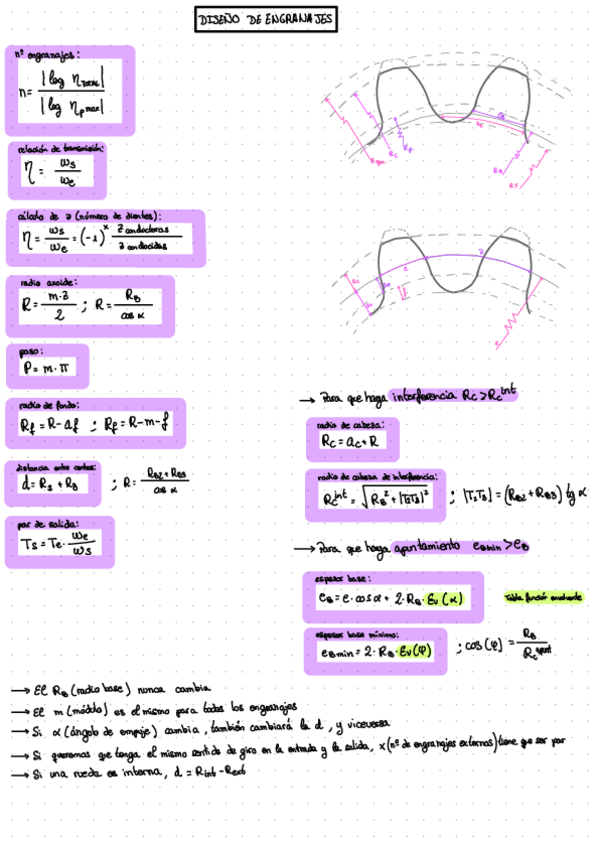 DISEÑO DE ENGRANAJES
nº engranajes:
n = |log η TOTAL| / |log η p max|
relación de transmisión:
η = ωs / ωe
cálculo de z (número de dientes):
η = ωs / ωe = (-1)^x z conductoras / z conducidas
radio axoide:
R = m·z / 2 ; R = RB / cos α
paso:
P = m·π
radio de fondo:
Rf = R - af ; Rf = R - m - f
distancia entre centros:
par de salida:
Ts = Te · ωe / ωs
→ Para que haga interferencia Rc > Rc int
radio de cabeza:
Rc = ac + R
radio de cabeza de interferencia:
→ Para que haga apuntamiento eBmin > eB
espesor base:
eB = e·cos α + 2·RB·Ev(α)
Tabla función envolvente
espesor base mínimo:
eBmin = 2·RB·Ev(φ) ; cos(φ) = RB / Rc apunt
→ El RB (radio base) nunca cambia
→ El m (módulo) es el mismo para todos los engranajes
→ Si α (ángulo de empuje) cambia, también cambiará la d, y viceversa
→ Si queremos que tenga el mismo sentido de giro en la entrada y la salida, x (nº de engranajes externos) tiene que ser par
→ Si una rueda es interna, d = Rint - Rext